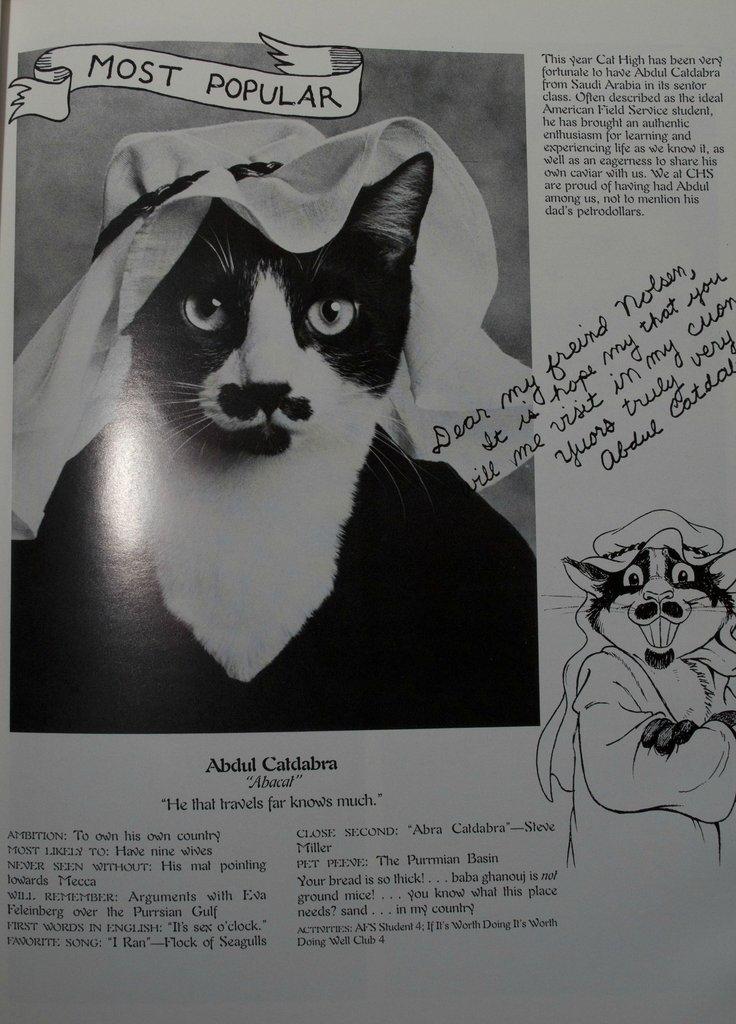 MOST POPULAR
This year Cat High has been very
fortunate to have Abdul Catdabra
from Saudi Arabia in its senior
class. Often described as the ideal
American Field Service student,
he has brought an authentic
enthusiasm for learning and
experiencing life as we know it, as
well as an eagerness to share his
own caviar with us. We at CHS
are proud of having had Abdul
among us, not to mention his
dad's petrodollars.
Dear my freind Nolsen,
It is hope my that you
will me visit in my cuon
yuors truly very
Abdul Catdab
Abdul Catdabra
"Abacat"
"He that travels far knows much."
AMBITION: To own his own country
MOST LIKELY TO: Have nine wives
NEVER SEEN WITHOUT: His mat pointing
towards Mecca
WILL REMEMBER: Arguments with Eva
Feleinberg over the Purrsian Gulf
FIRST WORDS IN ENGLISH: "It's sex o'clock."
FAVORITE SONG: "I Ran"—Flock of Seagulls
CLOSE SECOND: "Abra Catdabra"—Steve
Miller
PET PEEVE: The Purrmian Basin
Your bread is so thick! . . . baba ghanouj is not
ground mice! . . . you know what this place
needs? sand . . . in my country
ACTIVITIES: AFS Student 4; If It's Worth Doing It's Worth
Doing Well Club 4